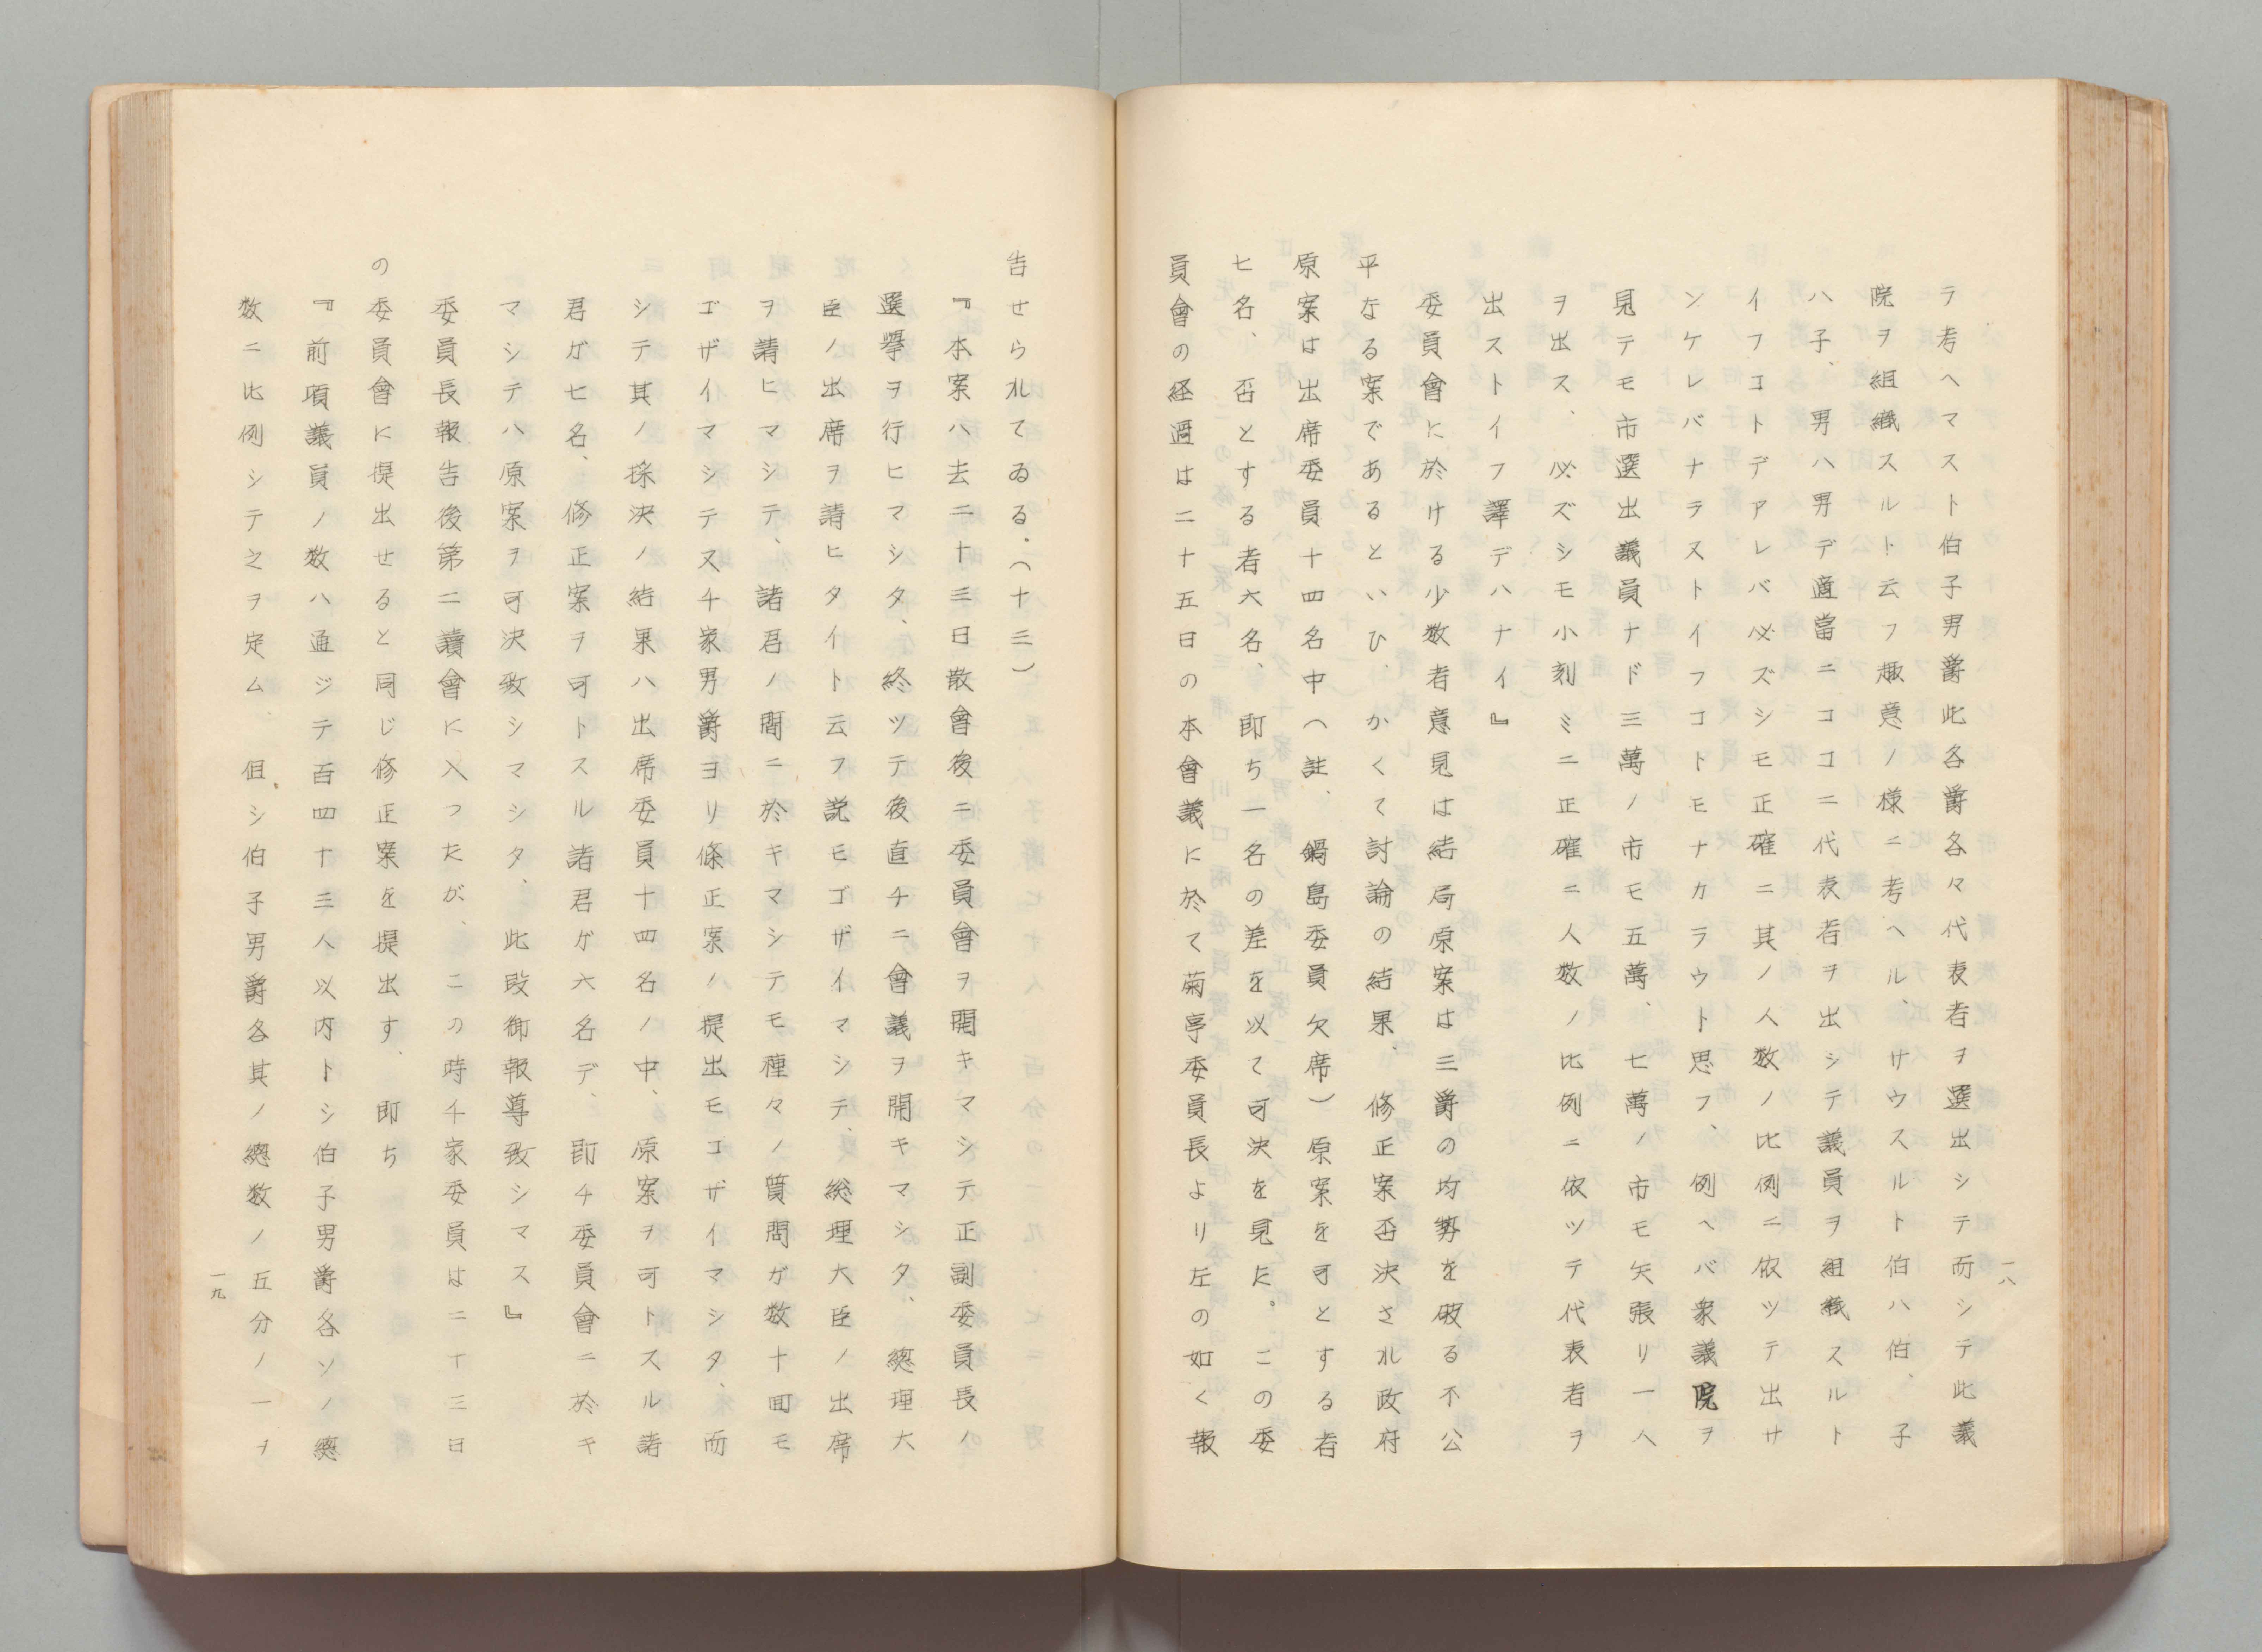 ラ考ヘマスト伯子男爵此各爵各々代表者ヲ選出シテ而シテ此議
院ヲ組織スルト云フ趣意ノ様ニ考ヘル、サウスルト伯ハ伯、子
ハ子、男ハ男デ適當ニココニ代表者ヲ出シテ議員ヲ組織スルト
イフコトデアレバ必ズシモ正確ニ其ノ人数ノ比例ニ依ツテ出サ
ンケレバナラヌトイフコトモナカラウト思フ、例ヘバ衆議院ヲ
見テモ市選出議員ナド三萬ノ市モ五萬、七萬ノ市モ矢張リ一人
ヲ出ス、必ズシモ小刻ミニ正確ニ人数ノ比例ニ依ツテ代表者ヲ
出ストイフ譯デハナイ』
委員會に於ける少数者意見は結局原案は三爵の均勢を破る不公
平なる案であるといひ、かくて討論の結果、修正案否決され政府
原案は出席委員十四名中（註、鍋島委員欠席）原案を可とする者
七名、否とする者六名、即ち一名の差を以て可決を見た。この委
員會の経過は二十五日の本會議に於て菊亭委員長より左の如く報
一八
告せられてゐる。（十三）
『本案ハ去二十三日散會後ニ委員會ヲ開キマシテ正副委員長ノ
選擧ヲ行ヒマシタ、終ツテ後直チニ會議ヲ開キマシタ、總理大
臣ノ出席ヲ請ヒタイト云フ説モゴザイマシテ、総理大臣ノ出席
ヲ請ヒマシテ、諸君ノ間ニ於キマシテモ種々ノ質問ガ数十回モ
ゴザイマシテ又千家男爵ヨリ條正案ノ提出モゴザイマシタ、而
シテ其ノ採決ノ結果ハ出席委員十四名ノ中、原案ヲ可トスル諸
君ガ七名、修正案ヲ可トスル諸君ガ六名デ、即チ委員會ニ於キ
マシテハ原案ヲ可決致シマシタ、此段御報導致シマス』
委員長報告後第二讀會に入つたが、この時千家委員は二十三日
の委員會に提出せると同じ修正案を提出す、即ち
『前項議員ノ数ハ通ジテ百四十三人以内トシ伯子男爵各ソノ總
数ニ比例シテ之ヲ定ム、但シ伯子男爵各其ノ總数ノ五分ノ一ヲ
一九